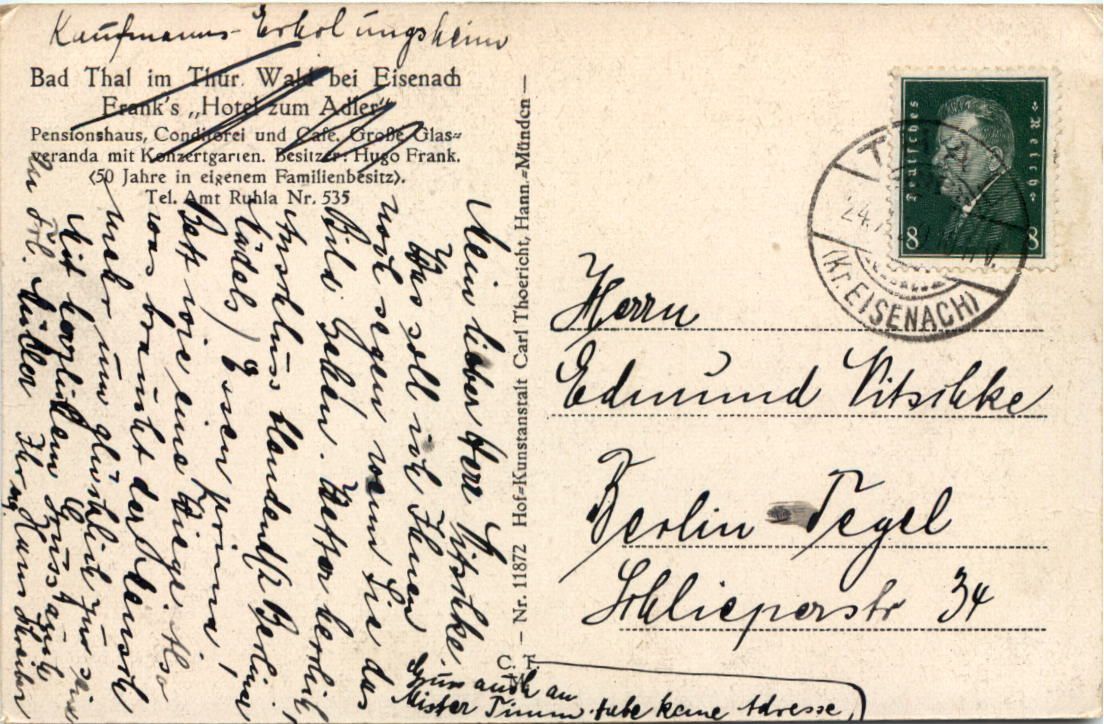 Kaufmanns-Erholungsheim
Bad Thal im Thür. Wald bei Eisenach
Frank's „Hotel zum Adler"
Pensionshaus, Conditorei und Café. Große Glas=
veranda mit Konzertgarten. Besitzer: Hugo Frank.
(50 Jahre in eigenem Familienbesitz).
Tel. Amt Ruhla Nr. 535
Mein lieber Herr Vitschke
Was soll ich Ihnen
noch sagen wenn Sie das
Bild sehen. Wetter herrlich,
Anschluss blendend (2 Berliner
Mädels) Essen prima,
Bett wie eine Wiege. Also
was braucht der Mensch
mehr um glücklich zu sein
Mit herzlichem Gruss auch
an Frl. Müller Ihr
Hans
Gruss auch an
Mister Timm, habe keine Adresse
Nr. 11872 Hof=Kunstanstalt Carl Thoericht, Hann.=Münden
C. T.
M
Deutsches Reich
8 8
24.7.
(Kr. EISENACH)
Herrn
Edmund Vitschke
Berlin-Tegel
Schlieperstr 34